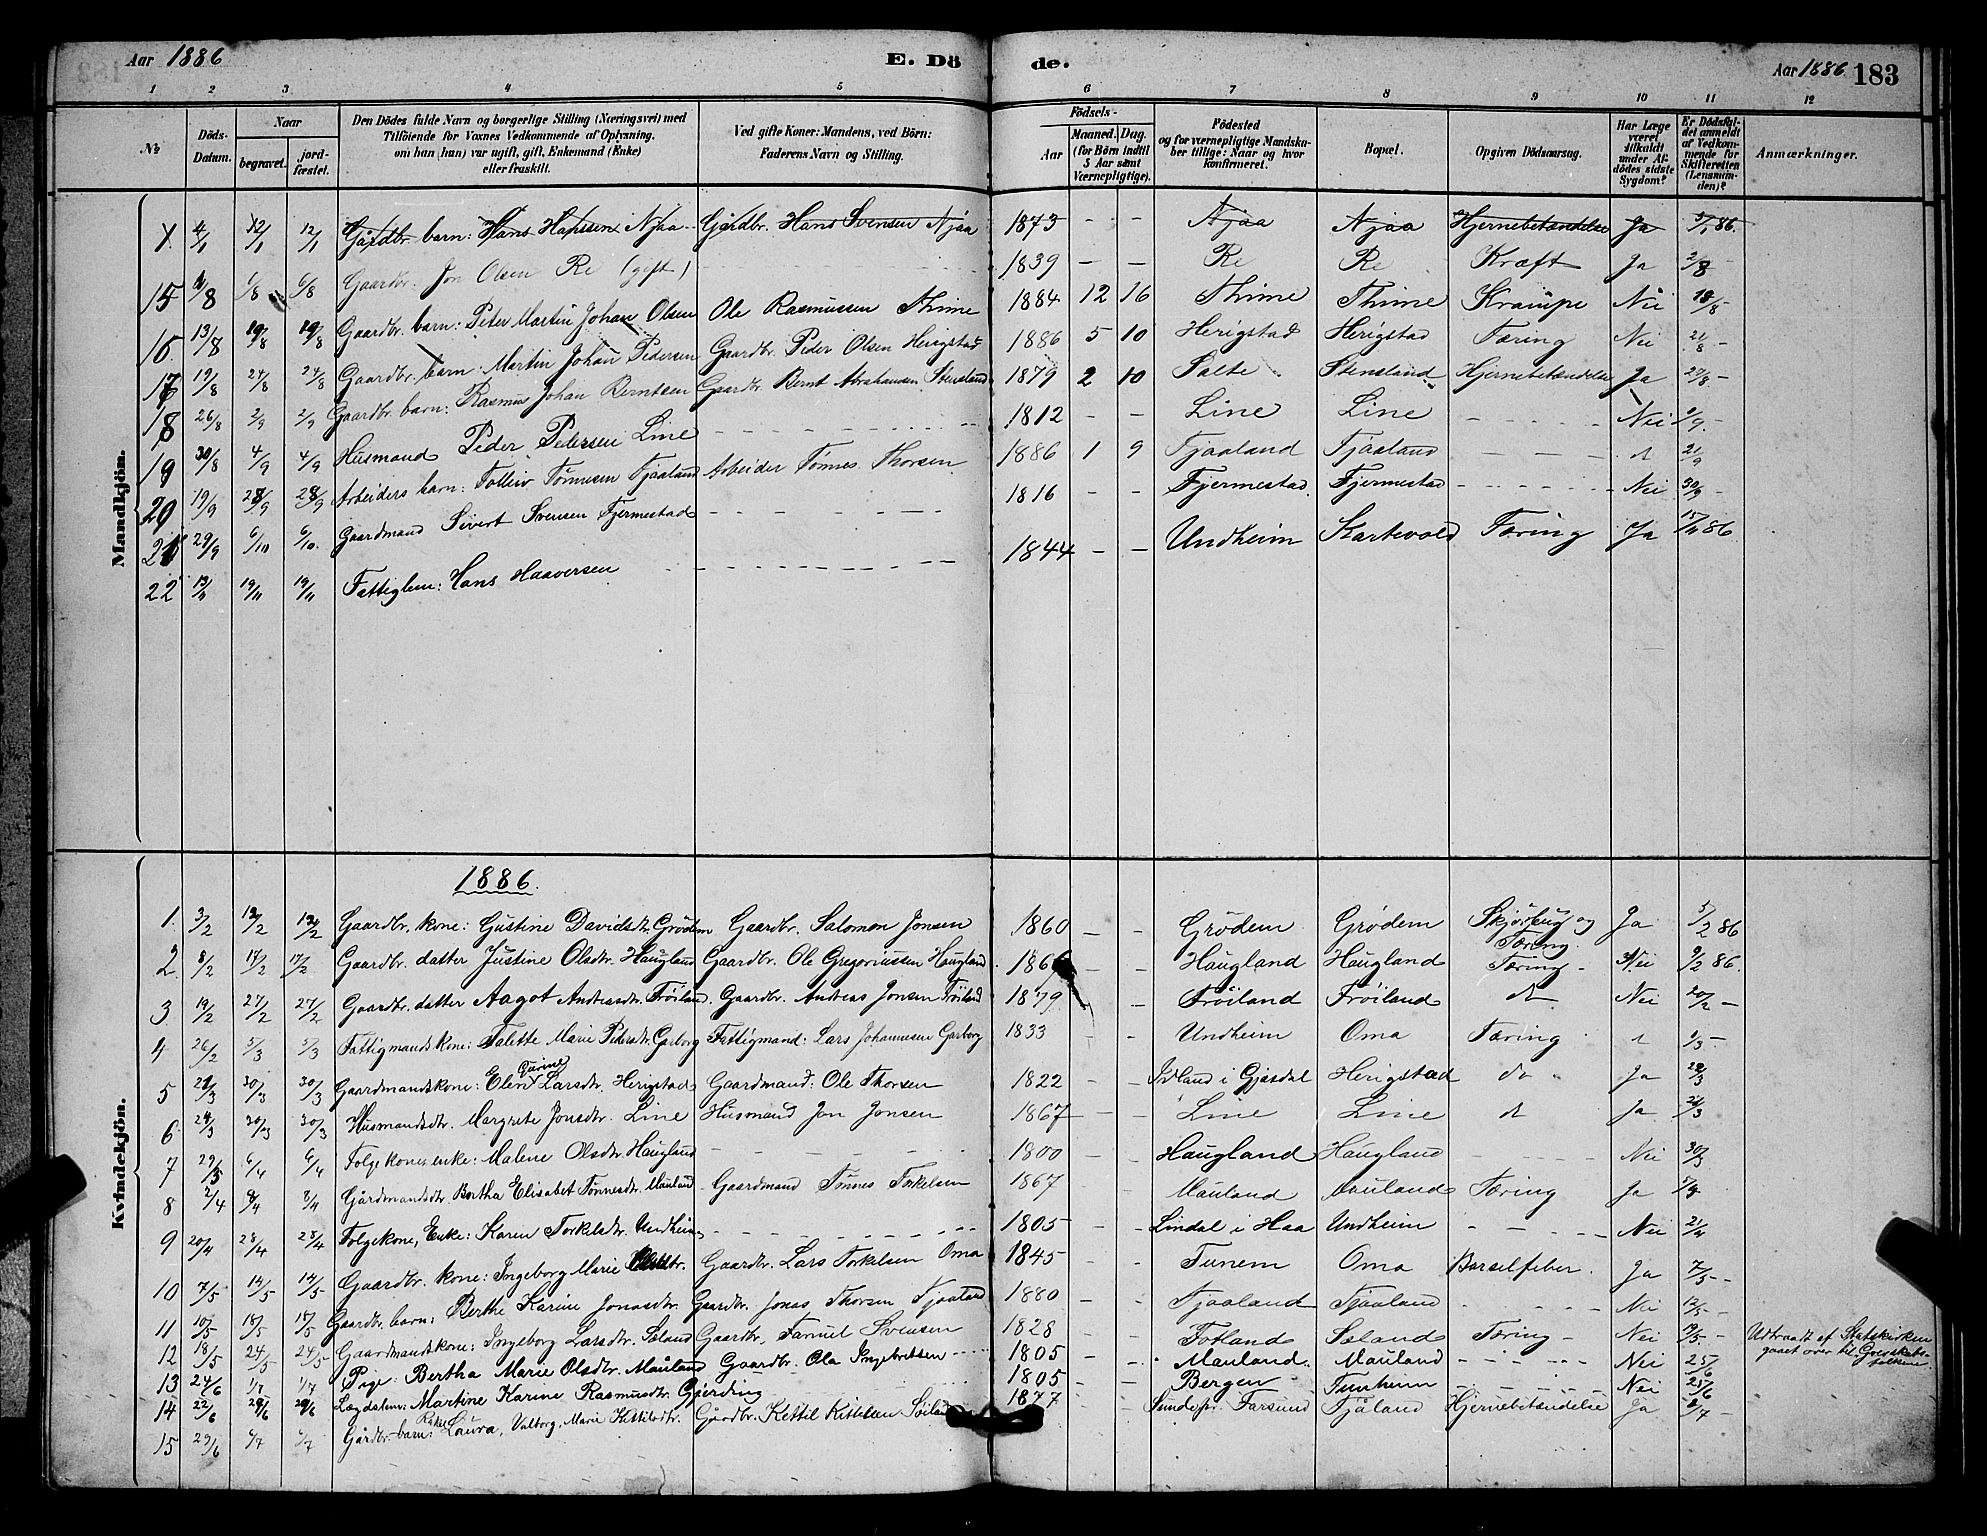 Aar 1886 E. Dö de. Aar 1886 183
1 2 3 4 5 6 7 8 9 10 11 12
No Döds-Datum. Naar begravet. jord-fæstet. Den Dödes fulde Navn og borgerlige Stilling (Næringsvei) med Tilföiende for Voxnes Vedkommende af Oplysning, om han (hun) var ugift, gift, Enkemand (Enke) eller fraskilt. Ved gifte Koner: Mandens, ved Börn: Faderens Navn og Stilling. Födsels- Aar Maaned. Dag. (for Börn indtil 5 Aar samt Værnepligtige). Födested og for værnepligtige Mandskaber tillige: Naar og hvor konfirmeret. Bopæl. Opgiven Dödsaarsag. Har Læge været tilkaldt under Afdödes sidste Sygdom? Er Dödsfaldet anmeldt af Vedkommende for Skifteretten (Lensmanden)? Anmærkninger.
Mandkjön.
1 4/1 12/1 12/1 Gårdbr. barn: Hans Hanssen Njaa Gårdbr. Hans Svensen Njaa 1873 - - Njaa Njaa Hjernebetændelse Ja 5/1 86.
15 2/8 6/8 6/8 Gaardbr. Jon Olsen Re (gift) 1839 - - Re Re Kræft Ja 2/8
16 13/8 19/8 19/8 Gaardbr. barn: Peter Martin Johan Olsen Ole Rasmussen Thime 1884 12 16 Thime Thime Krampe Nei 18/8
17 19/8 24/8 24/8 Gaardbr. barn: Martin Johan Pedersen Gaardbr. Peder Olsen Herigstad 1886 5 10 Herigstad Herigstad Tæring Nei 21/8 -
18 26/8 2/9 2/9 Gaardbr. barn: Rasmus Johan Berntsen Gaardbr. Bernt Abrahamsen Stensland 1879 2 10 Salte Stensland Hjernebetændelse Ja 27/8 -
19 30/8 4/9 4/9 Husmand Peder Pedersen Line 1812 - - Line Line Nei
20 19/9 28/9 28/9 Arbeiders barn: Tolleiv Tønnesen Tjaaland Arbeider Tønnes Thorsen 1886 1 9 Tjaaland Tjaaland 21/9
21 29/9 6/10 6/10. Gaardmand Sivert Svensen Fjermestad 1816 - - Fjermestad. Fjermestad Nei 30/9 -
22 13/11 19/11 19/11 Fattiglem: Hans Haaversen 1844 - - Undheim Skartevold Tæring Ja 15/11 86
Kvindekjön.
1886.
1. 3/2 12/2 12/2 Gaardbr. kone: Gustine Davidsdtr Grødem Gaardbr. Salomon Jonsen 1860 - - Grødem Grødem og Tæring Ja 5/2 86
2. 8/2 17/2 17/2 Gaardbr. datter Justine Olsdtr. Haugland Gaardbr. Ole Gregoriussen Haugland Haugland Haugland Tæring - Nei 9/2 86.
3. 19/2 27/2 27/2 Gaardbr. datter Aagot Andreasdtr. Frøiland. Gaardbr. Andreas Jonsen Frøiland 1879 - Frøiland Frøiland Nei 20/2 -
4 26/2 5/3 5/3 Fattigmandskone: Talette Marie Pedersdtr. Garborg Fattigmand: Lars Johannesen Garborg 1833 - - Undheim Oma Tæring
5 21/3 30/3 30/3 Gaardmandskone: Elen Larsdtr. Herigstad Gaardmand: Ole Thorsen 1822 - - i Gjæsdal Herigstad do Ja 22/3
6 24/3 30/3 30/3 Husmandsdtr. Margrete Jonsdtr. Line Husmand Jon Jonsen 1867 - - Line Line Ja 26/3
7 29/3 6/4 6/4 Folgekone, enke: Malene Olsdtr. Haugland 1800 - - Haugland Haugland Nei 30/3
8 2/4 8/4 8/4 Gårdmandsdtr Bertha Elisabet Tønnesdtr. Mauland Gaardmand Tønnes Torkelsen 1867 - - Mauland Mauland Tæring Ja 5/4
9 20/4 28/4 28/4 Folgekone, Enke: Karen Torkelsdtr. Undheim 1805 - - Lindal i Haa Undheim Nei 21/4
10 7/5 14/5 14/5 Gaardbr. kone: Ingeborg Marie Olsdtr. Gaardbr. Lars Torkelsen Oma 1845 - - Tunem Oma Barselfeber. Ja 7/5 -
11 10/5 18/5 18/5 Gaardbr. barn: Berthe Karine Jonasdtr. Gaardbr. Jonas Thorsen Tjaaland 1880 - - Tjaaland Tjaaland Nei 12/5 -
12 18/5 24/5 24/5 Gaardmandskone: Ingeborg Larsdtr. Søland Gaardbr. Samuel Svensen 1828 Fotland Søland Tæring - Nei 19/5 - Udtraadt af Statskirken gaaet over til
13 24/6 1/7 1/7 Pige: Bertha Marie Olsdtr. Mauland Gaardbr. Ola Ingebretsen 1805 - Mauland. Mauland Nei 25/6
14 22/6 29/6 29/6 Lægdslem: Martine Karine Rasmusdtr. Gjerding 1805 - Bergen Tunheim Nei 25/6
15 29/6 6/7 6/7 Gårdbr. barn: Laura, Valborg, Marie Kittilsdtr. Gårdbr. Kettil Kittilsen 1877 - Farsund Tjåland Hjernebetændelse Ja